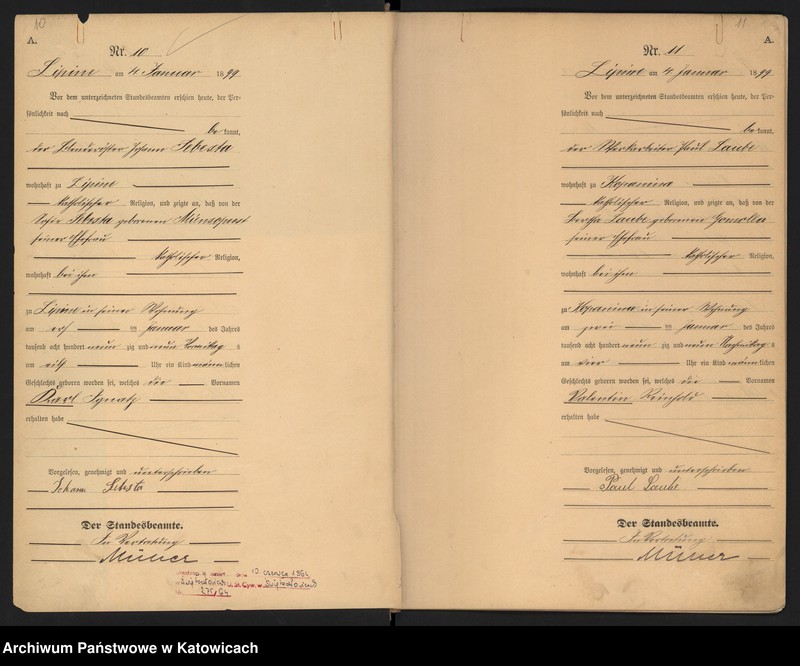 10
A.
Nr. 10
Lipine am 4 Januar 1899
Vor dem unterzeichneten Standesbeamten erschien heute, der Per-
sönlichkeit nach
be kannt,
der Johann Sebesta
wohnhaft zu Lipine
katholischer Religion, und zeigte an, daß von der
Sebesta geborenen
seiner Ehefrau
katholischer Religion,
wohnhaft bei ihm
zu Lipine in seiner Wohnung
am Januar des Jahres
tausend acht hundert neun zig und neun Vormittag s
um Uhr ein Kind männlichen
Geschlechts geboren worden sei, welches die Vornamen
Karl Ignatz
erhalten habe
Vorgelesen, genehmigt und unterschrieben
Johann Sebesta
Der Standesbeamte.
In Vertretung
Müller
11
A.
Nr. 11
Lipine am 4 Januar 1899
Vor dem unterzeichneten Standesbeamten erschien heute, der Per-
sönlichkeit nach
be kannt,
der Paul Laube
wohnhaft zu Kopanina
katholischer Religion, und zeigte an, daß von der
Laube geborenen Gomolla
seiner Ehefrau
katholischer Religion,
wohnhaft bei ihm
zu Kopanina in seiner Wohnung
am zwei Januar des Jahres
tausend acht hundert neun zig und neun Nachmittag s
um vier Uhr ein Kind männlichen
Geschlechts geboren worden sei, welches die Vornamen
Valentin Reinhold
erhalten habe
Vorgelesen, genehmigt und unterschrieben
Paul Laube
Der Standesbeamte.
In Vertretung
Müller
Archiwum Państwowe w Katowicach